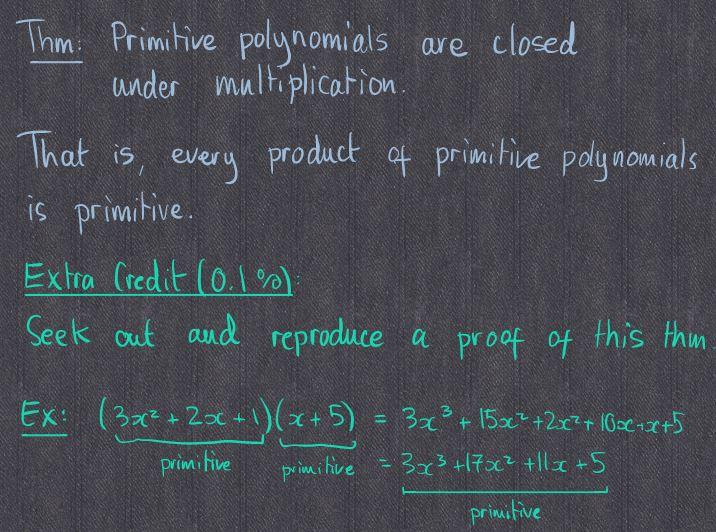 Thm: Primitive polynomials are closed
under multiplication.
That is, every product of primitive polynomials
is primitive.
Extra Credit (0.1%):
Seek out and reproduce a proof of this thm.
Ex: (3x² + 2x + 1)(x + 5) = 3x³ + 15x² + 2x² + 10x + x + 5
primitive primitive = 3x³ + 17x² + 11x + 5
primitive